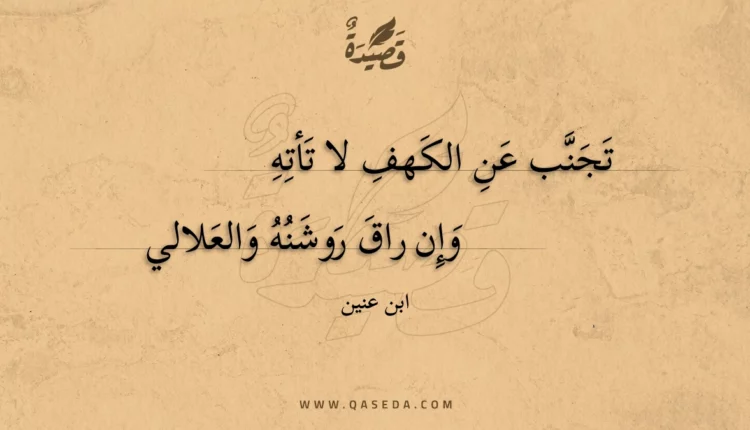 قَصِيْدَةٌ
تَجَنَّب عَنِ الكَهفِ لا تَأتِهِ
وَإِن راقَ رَوشَنُهُ وَالعَلالي
ابن عنين
WWW.QASEDA.COM